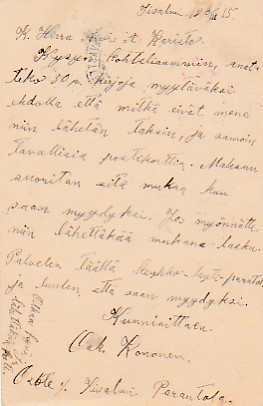 Iisalmi, 15.
K. Herra Arvi A. Karisto.
Kysyn kohteliaammin, anat-
teko 30 kirjoja myytäväksi
ehdolla että mitkä eivät mene
niin lähetän taksin, ja samoin
tavallisia postikorttia. Maksun
suoritan sitä mukaa kun
saan myydyksi. Jos myönnätte
niin lähettäkää mukana lasku.
Palvelen täällä
ja luulen että saan myydyksi.
Kunnioittaen.
Osk. Kononen.
Osote: Iisalmi Parantola.
Olkaa hyvä